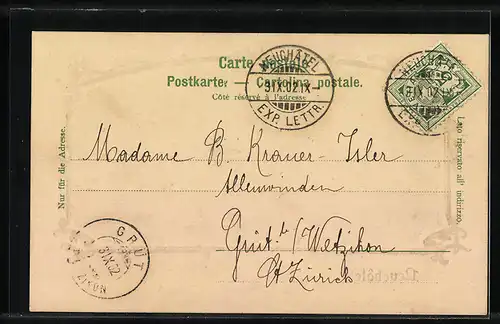 Carte postale.
Postkarte. — Cartolina postale.
Côté réservé à l'adresse
Nur für die Adresse.
Lato riservato all' indirizzo.
NEUCHÂTEL
31.X.02.IX-
EXP. LETTR.
NEUCHÂTEL
31.X.02
EXP.
Madame B. Krauer-Isler
Allenwinden
Grüt b/Wetzikon
Ct Zürich
GRÜT
31.X.02